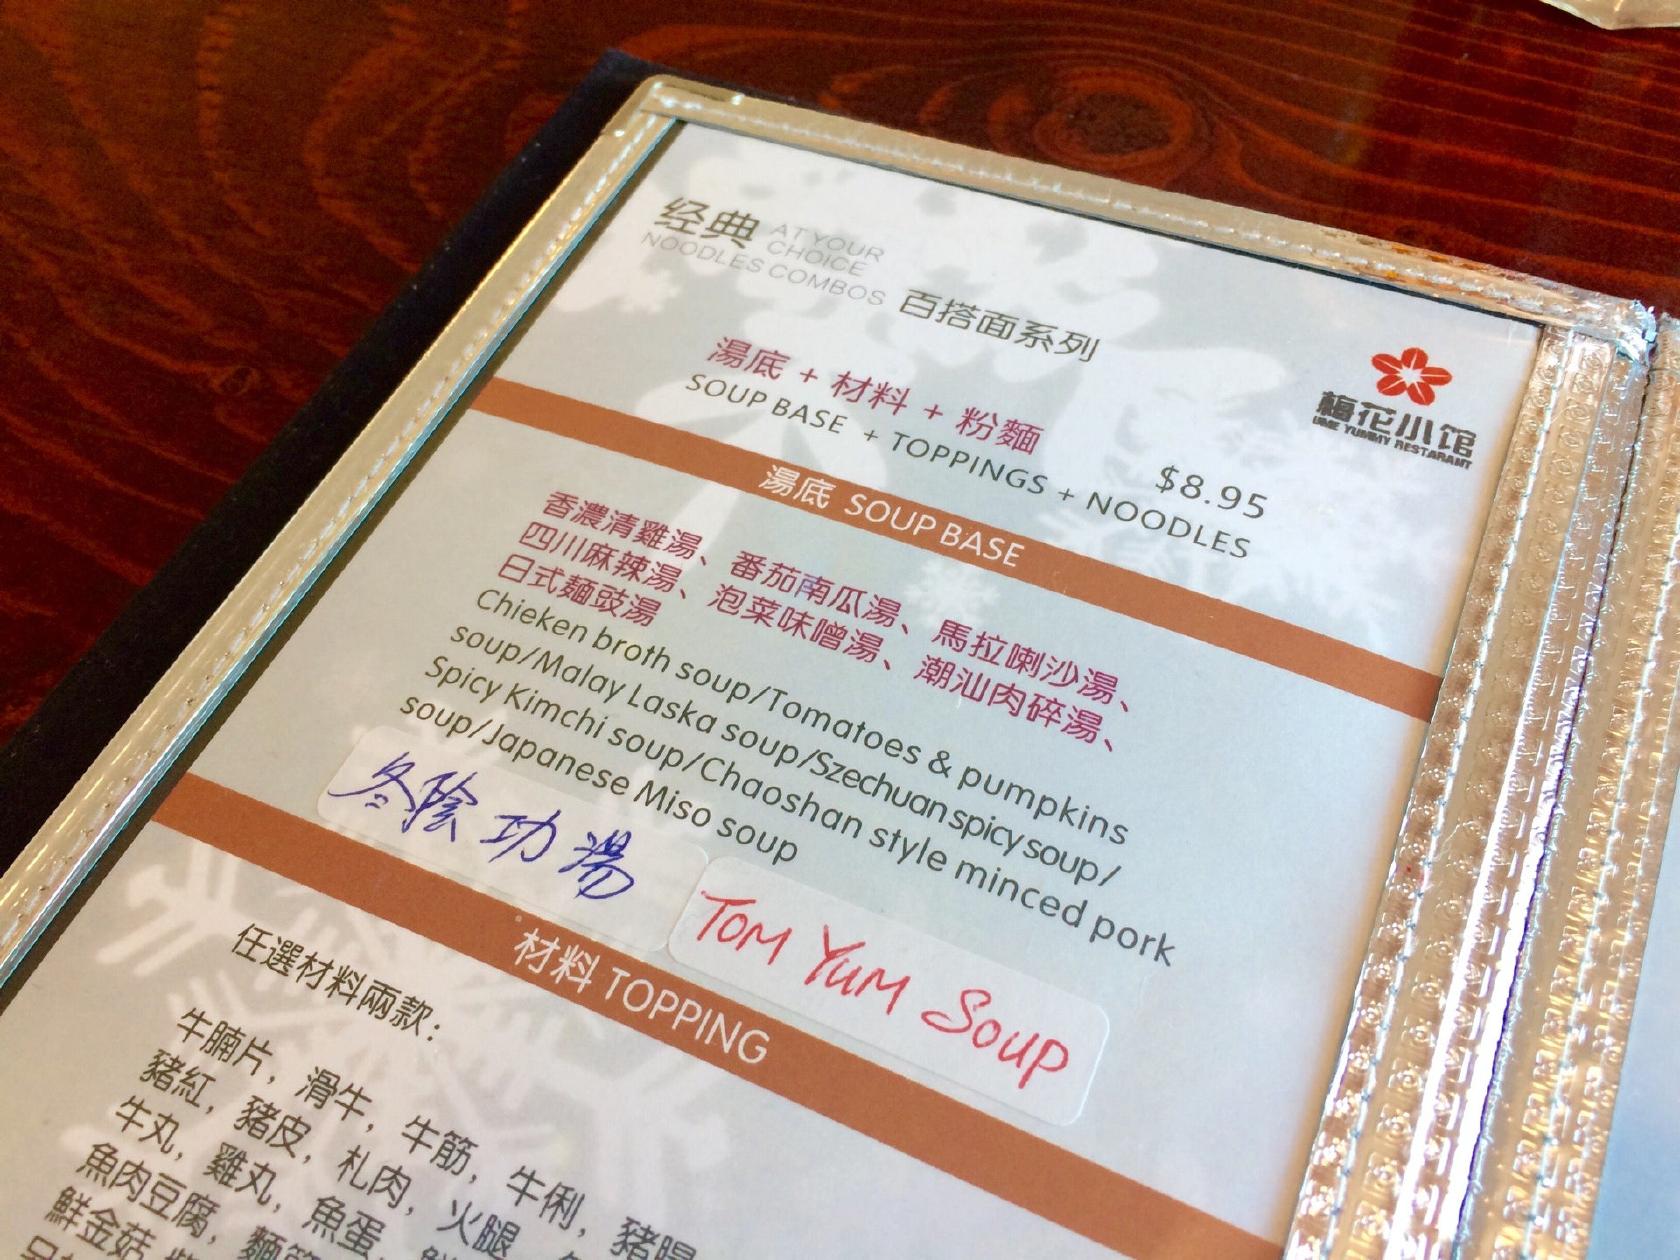 经典 AT YOUR
CHOICE
NOODLES COMBOS
百搭面系列
湯底 + 材料 + 粉麵
SOUP BASE + TOPPINGS + NOODLES
$8.95
梅花小馆
UME YUMMY RESTARANT
湯底 SOUP BASE
香濃清雞湯、番茄南瓜湯、馬拉喇沙湯、
四川麻辣湯、泡菜味噌湯、潮汕肉碎湯、
日式麵豉湯
Chieken broth soup/Tomatoes & pumpkins
soup/Malay Laska soup/Szechuan spicy soup/
Spicy Kimchi soup/Chaoshan style minced pork
soup/Japanese Miso soup
冬陰功湯
TOM YUM Soup
材料 TOPPING
任選材料兩款：
牛腩片，滑牛，牛筋，牛俐，豬腸
豬紅，豬皮，札肉，火腿
牛丸，雞丸，魚蛋，
魚肉豆腐，麵筋
鮮金菇